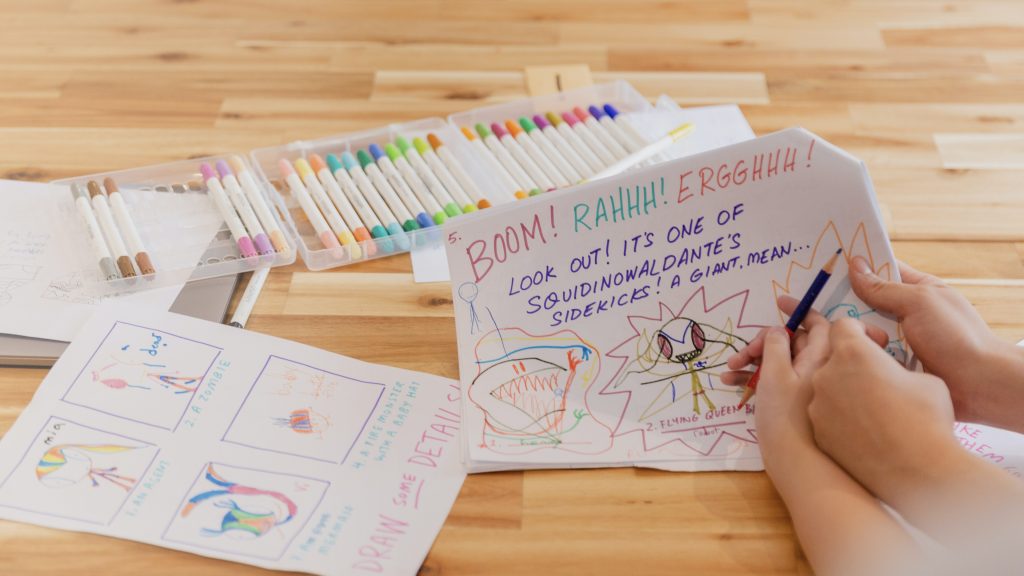 5.
BOOM! RAHHH! ERGGHHH!
LOOK OUT! IT'S ONE OF
SQUIDINOWALDANTE'S
SIDEKICKS! A GIANT, MEAN...
2. FLYING QUEEN
dead
2. A ZOMBIE
mia
4. A FIRE MONSTER
WITH A BABY HAT
DRAW SOME DETAILS
MERMAID